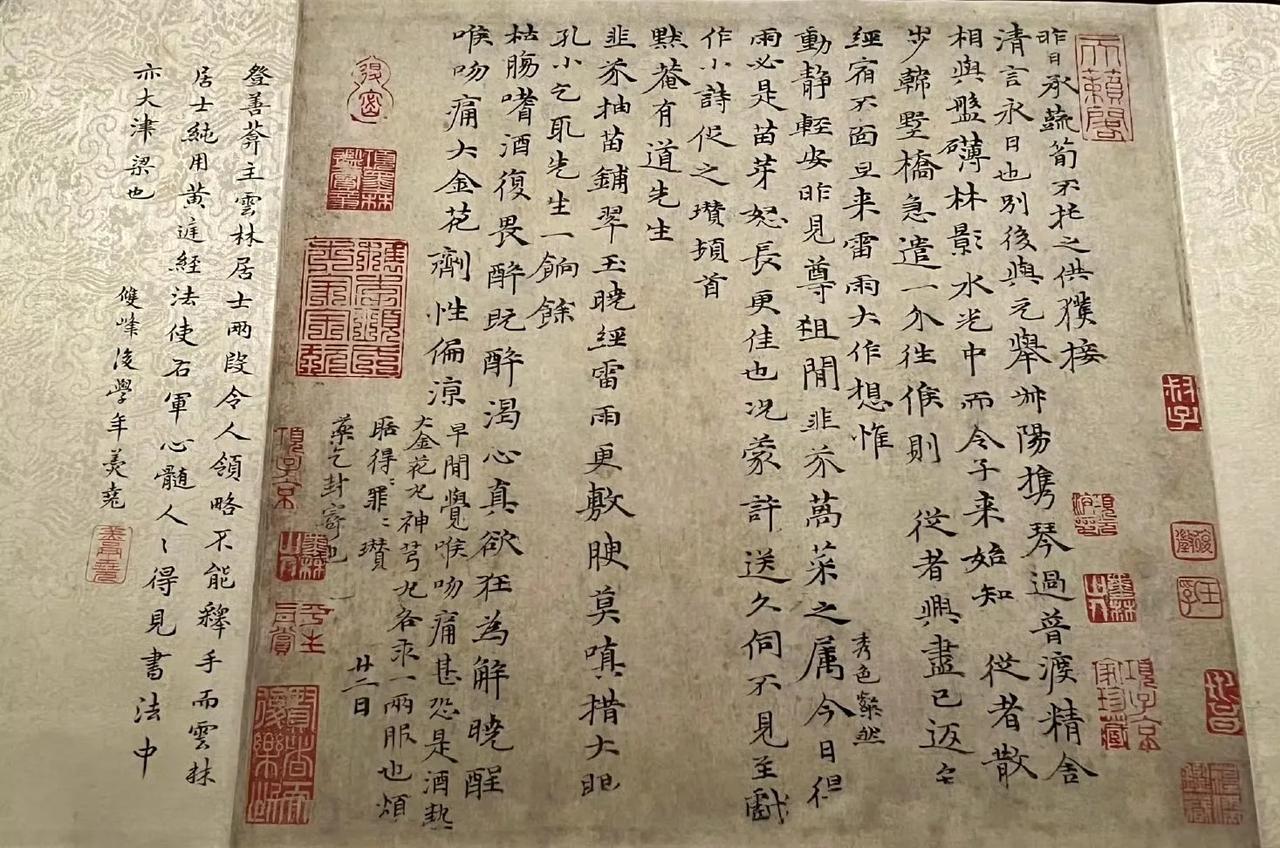 昨日承蔬筍不托之供獲接
清言永日也別後與元舉艸陽攜琴過普渡精舍
相與盤礴林影水光中而令子来始知 從者散
步韓墅橋急遣一介往候則 從者興盡已返
經宿不面旦来雷雨大作想惟
動静輕安昨見尊俎閒韭芥萵菜之属今日得
秀色粲然
雨必是苗芽怒長更佳也况蒙許送久伺不見至戲
作小詩促之瓚頓首
默菴有道先生
韭芥抽苗鋪翠玉曉經雷雨更敷腴莫嗔措大眼
孔小乞取先生一餉餘
枯腸嗜酒復畏醉既醉渴心真欲狂為解曉酲
喉吻痛大金花劑性偏凉
早閒覺喉吻痛甚恐是酒熱
大金花丸神芎丸各求一兩服也煩
聒得罪〻瓚
藥乞封寄也
廿二日
登善菴主雲林居士兩段令人領略不能釋手而雲林
居士純用黄庭經法使右軍心髓人〻得見書法中
亦大津梁也
雙峰後學年羹堯
天籟閣
項子京
家珍藏